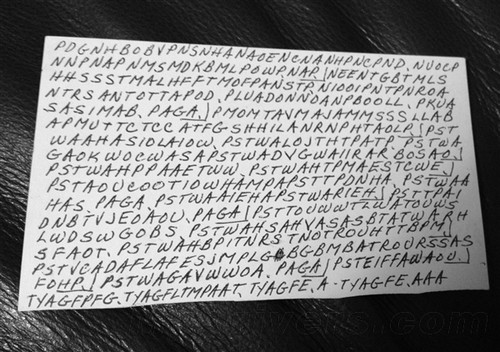 PDGNHBOBVPNSNHANAOENCNANHPNCPND, NUOCP
NNPNAPNMSMDKBMLPOWPNAP, NEENTGBTMLS
HHSSSTMALHFFTMOFPANSTPNIOOIPNTPNROA
NTRSANTOTTAPOD, PLUADONNOANPBOOLL, PKUA
SASIMAB, PAGA, PMOMTAVMAJAMMSSSLLAB
APMUTTCTCCATFGSHHILANRNPHTAOLP PST
WAAHASIOLAIOW, PSTWALOJTHTPATP, PSTWA
GAOKWOCWASAPSTWADVGWAIIRARBOSAO,
PSTWAHPPAAETWW, PSTWAHTPMAESTCWE,
PSTAOUCOOTIOWHAMPAPSTTPDNHA, PSTWAA
HAS, PAGA, PSTWAAIEHAPSTWARIEH PSTTPAI
DNBTVJEOAOU, PAGA PSTTOUWWTLWATOUWS
LWDSWGOBS, PSTWAHSAHVASASBTATWARH
SFAOT, PSTWAHBPITNRSTNOTROUHTTBPM,
PSTVCADAFLAFESJMPLGBGBMBATROURSSAS
FOHP, PSTWAGAVWWOA, PAGA PSTEIFFAWAOU,
TYAGFPFG, TYAGFLTMPAAT, TYAGFE, A-TYAGFE, AAA